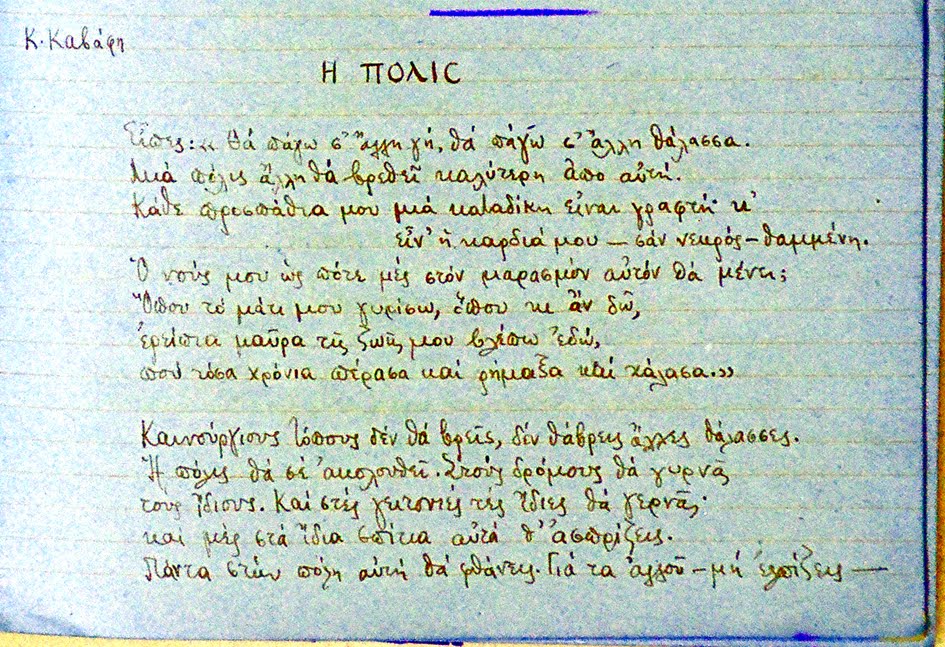 Κ. Καβάφη
Η ΠΟΛΙC
Εἶπες: « Θά πάγω σ' ἄλλη γή, θά πάγω σ' ἄλλη θάλασσα.
Μιά πόλις ἄλλη θά βρεθεῖ καλύτερη ἀπο αὐτή.
Κάθε προσπάθια μου μιά καταδίκη εἶναι γραφτή· κ'
εἶν' ἡ καρδιά μου — σάν νεκρός — θαμμένη.
Ὁ νούς μου ὡς πότε μές στόν μαρασμόν αὐτόν θά μένει;
Ὅπου τό μάτι μου γυρίσω, ὅπου κι ἄν δῶ,
ἐρείπια μαῦρα τῆς ζωῆς μου βλέπω ἐδώ,
πού τόσα χρόνια πέρασα καί ρήμαξα καί χάλασα.»
Καινούργιους τόπους δέν θά βρεῖς, δέν θάβρεις ἄλλες θάλασσες.
Ἡ πόλις θά σέ ἀκολουθεῖ. Στούς δρόμους θά γυρνᾶς
τούς ἴδιους. Καί στές γειτονιές τές ἴδιες θά γερνᾶς·
και μές στά ἴδια σπίτια αὐτά θ' ἀσπρίζεις.
Πάντα στήν πόλη αὐτή θά φθάνεις. Γιά τα ἀλλοῦ — μή ἐλπίζεις —